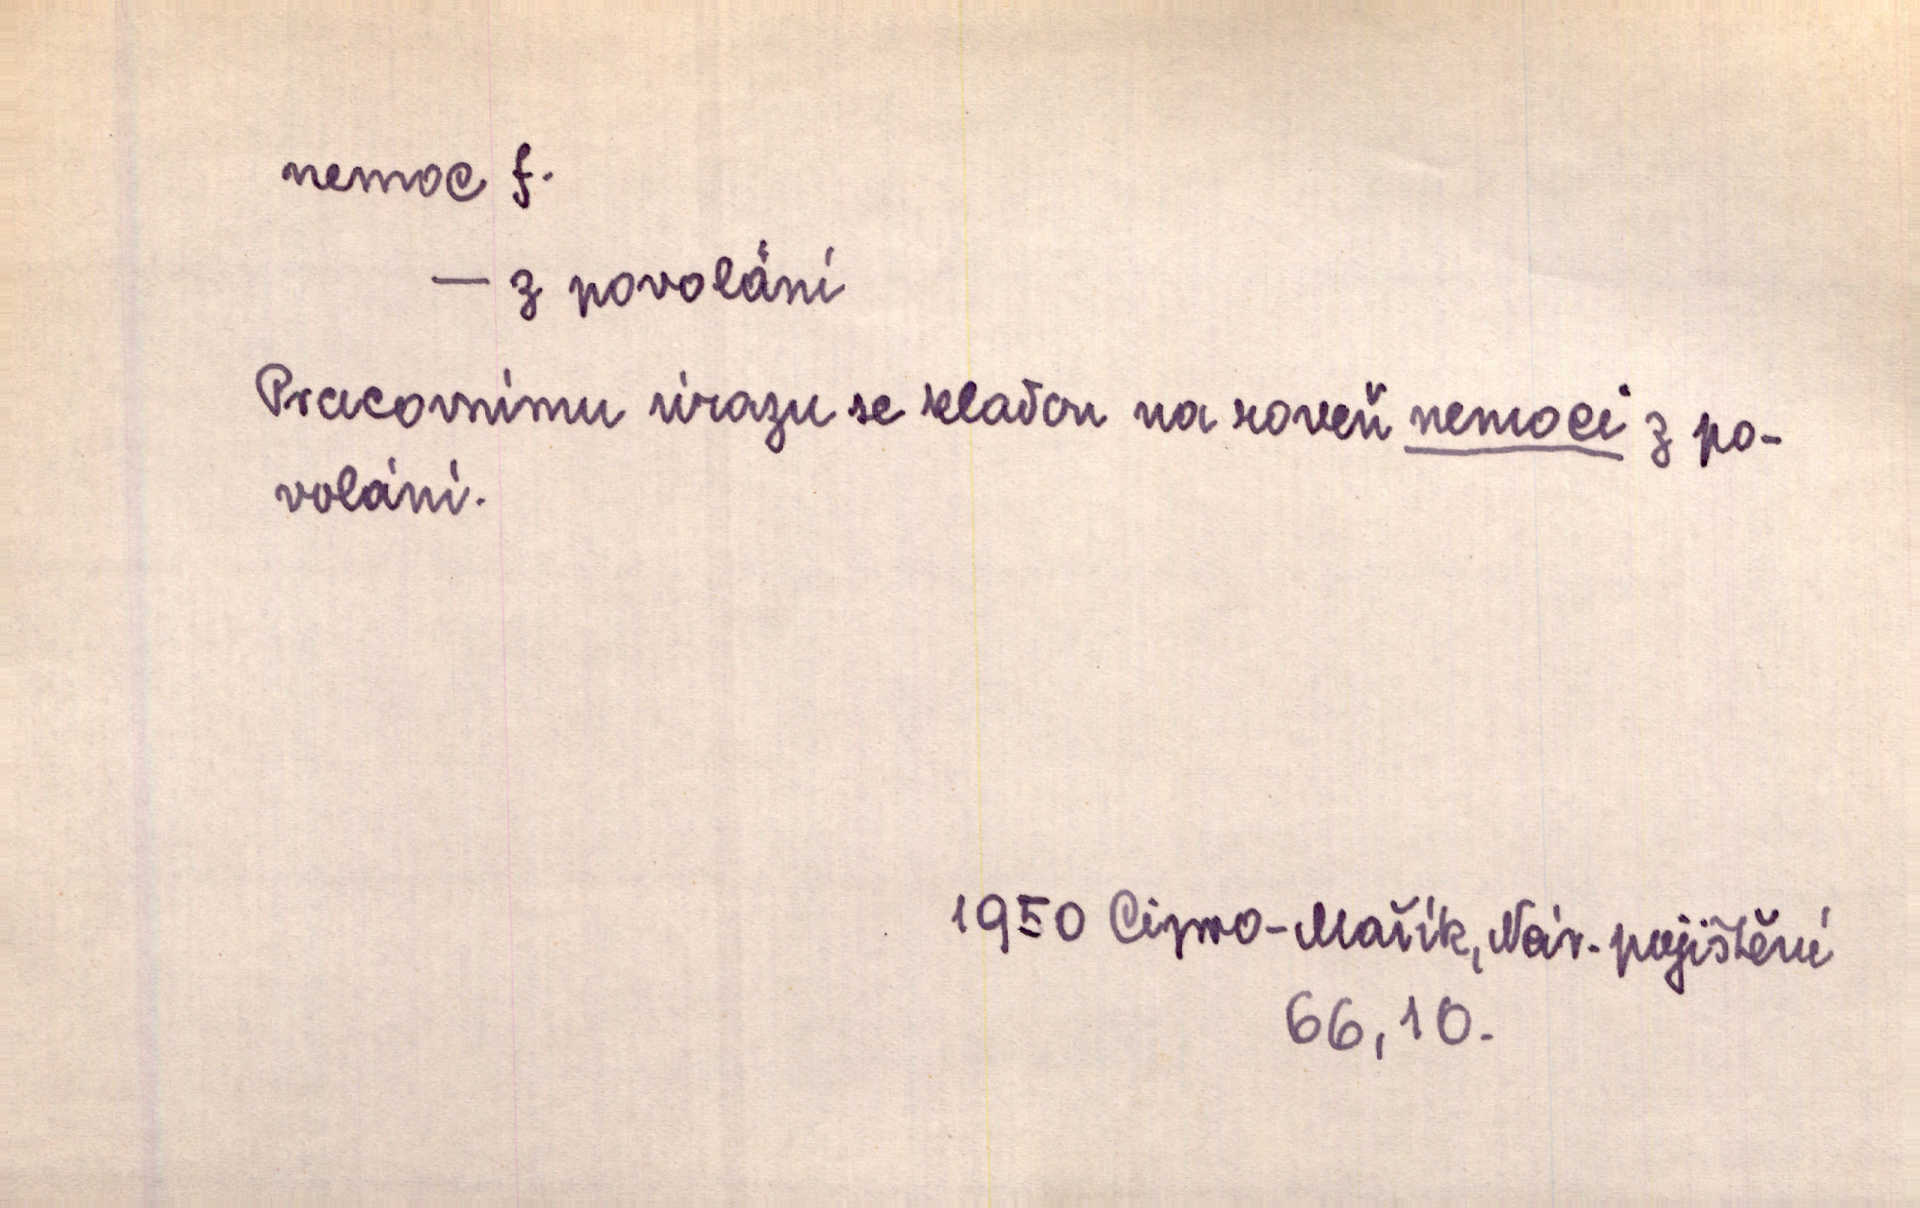 nemoc f.
— z povolání
Pracovnímu úrazu se kladou na roveň nemoci z po-
volání.
1950 Cipro-Mařík, Nár. pojištění
66,10.